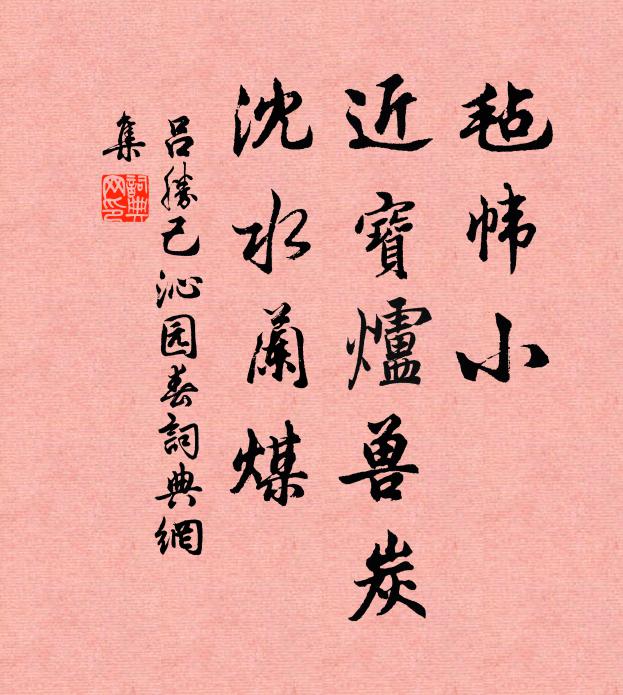 毡帏小
近寶爐獸炭
沈水蘭煤
吕勝己沁园春詞典網
集
詞典网印